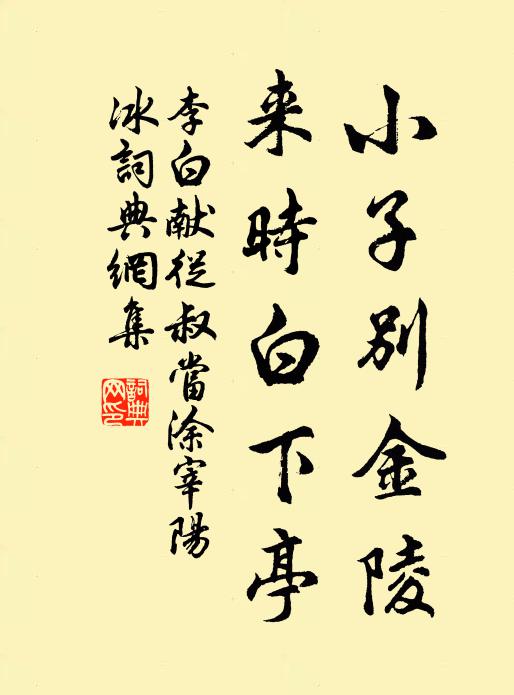 小子别金陵
来時白下亭
李白献從叔當涂宰陽
冰詞典網集
詞典網印